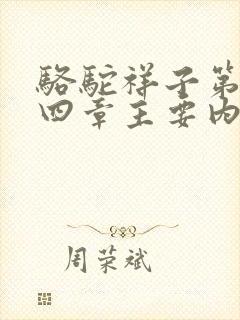 骆驼祥子第
四章主要内
周荣斌